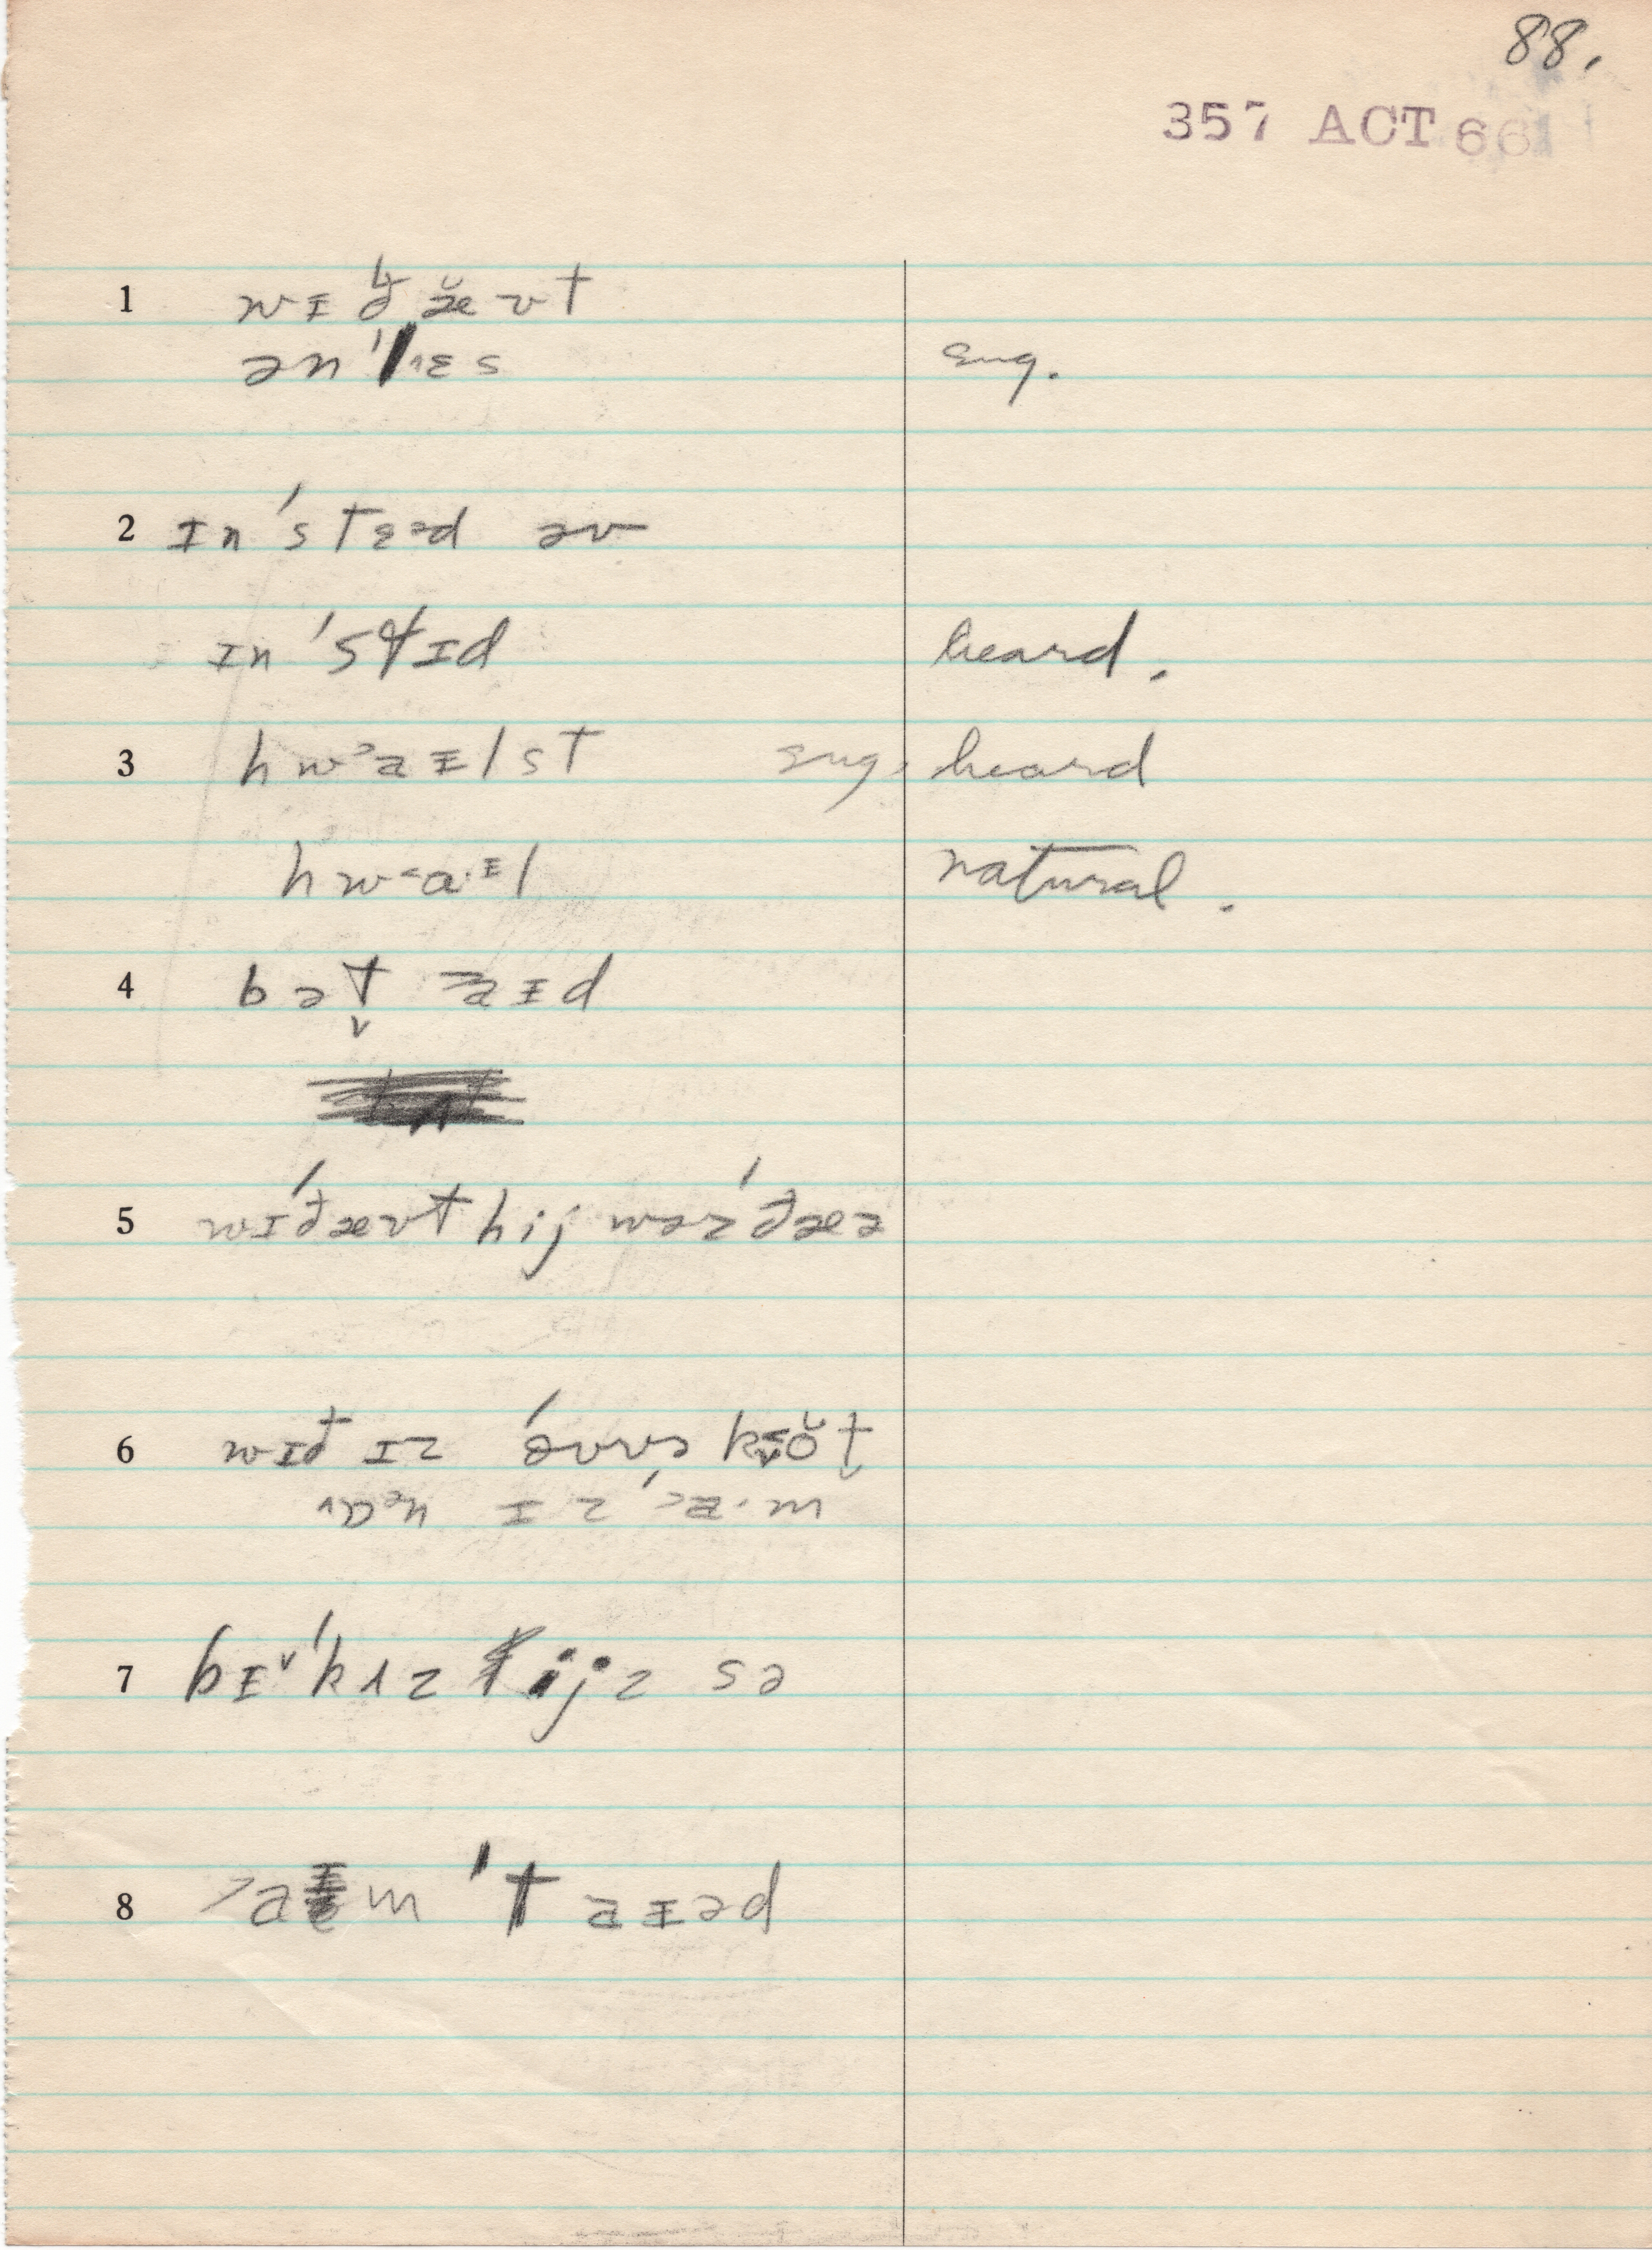 88.
357 ACT 66
1 wɪðæ̆vt
ən'lɛs sug.
2 ɪn'stɛəd əv
ɪn'stɪd heard.
3 hw˃aɪlst sug. heard
hw˂a·ɪl natural.
4 bət̬ ˃aɪd
5 wɪ'ðævt hij wəz'ðæə
6 wɪð ɪz óvvɚ kŏt̬
ɪz '˃a·m
7 bɪ˅'kʌz ijz sə
8 ˃am 'taɪəd